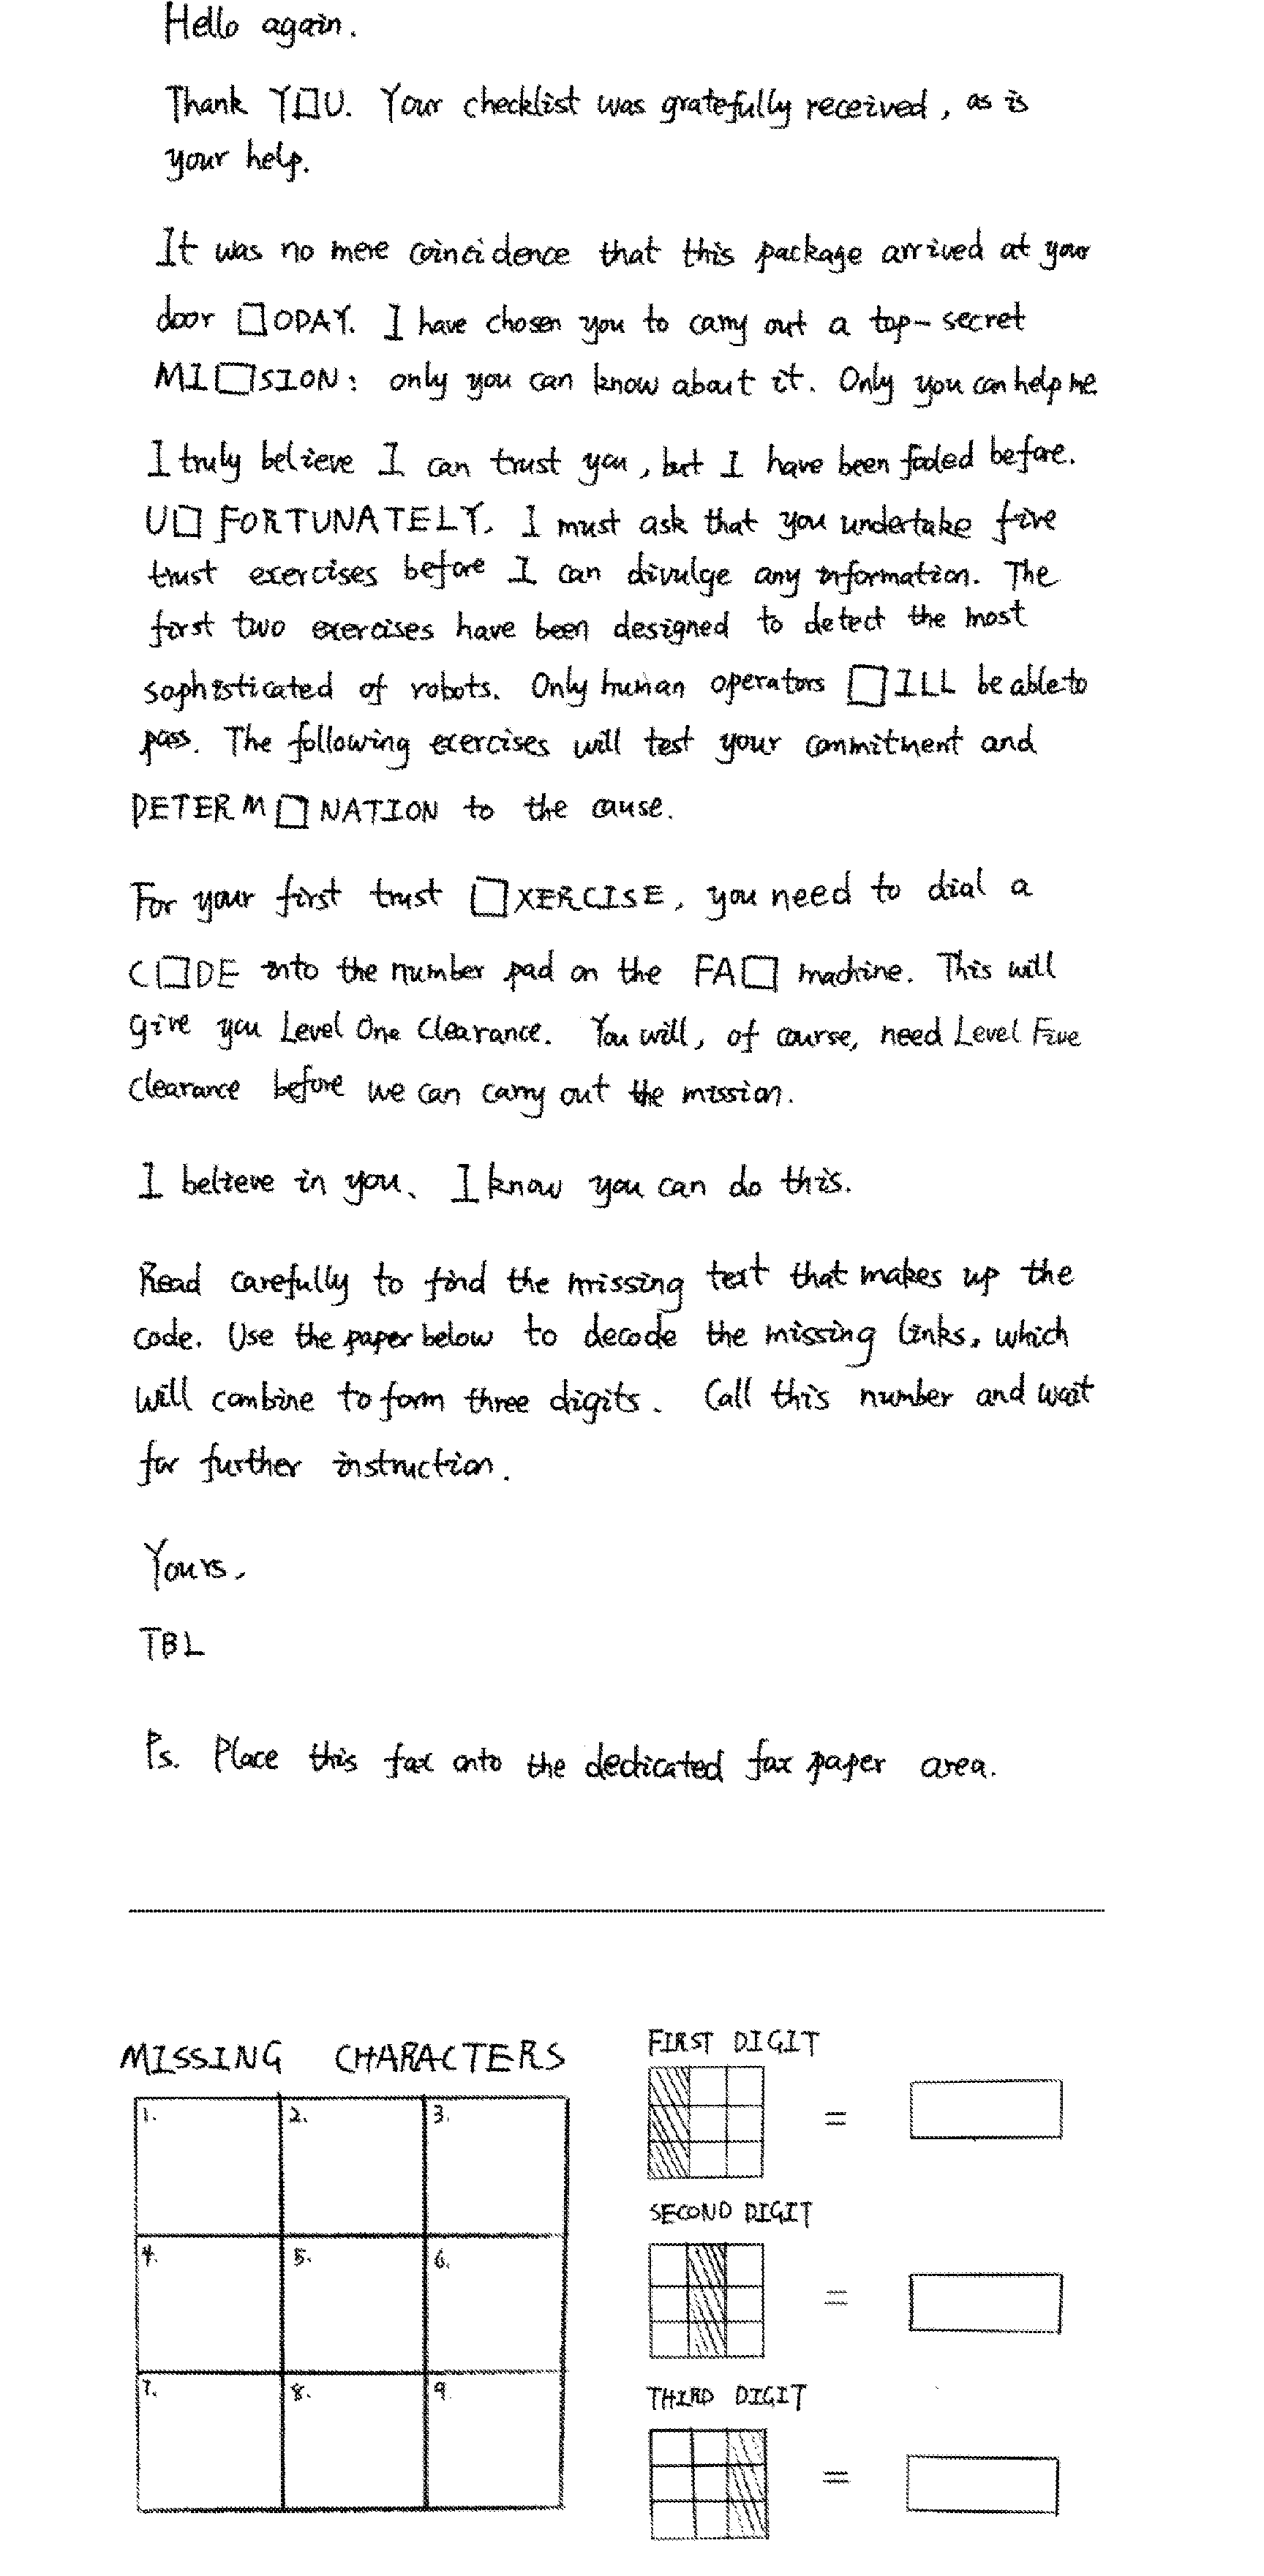 Hello again.
Thank Y□U. Your checklist was gratefully received, as is
your help.
It was no mere coincidence that this package arrived at your
door □ODAY. I have chosen you to carry out a top-secret
MI□SION: only you can know about it. Only you can help me
I truly believe I can trust you, but I have been fooled before.
U□FORTUNATELY, I must ask that you undertake five
trust exercises before I can divulge any information. The
first two exercises have been designed to detect the most
sophisticated of robots. Only human operators □ILL be able to
pass. The following exercises will test your commitment and
DETERM□NATION to the cause.
For your first trust □XERCISE, you need to dial a
C□DE into the number pad on the FA□ machine. This will
give you Level One Clearance. You will, of course, need Level Five
Clearance before we can carry out the mission.
I believe in you, I know you can do this.
Read carefully to find the missing text that makes up the
code. Use the paper below to decode the missing links, which
will combine to form three digits. Call this number and wait
for further instruction.
Yours,
TBL
Ps. Place this fax onto the dedicated fax paper area.
MISSING CHARACTERS
1. 2. 3.
4. 5. 6.
7. 8. 9.
FIRST DIGIT
=
SECOND DIGIT
=
THIRD DIGIT
=